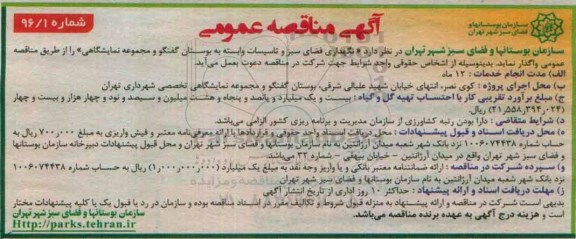 شماره ۹۶/۱
آگهی مناقصه عمومی
سازمان بوستانها و
فضای سبز شهر تهران
سازمان بوستانها و فضای سبز شهر تهران در نظر دارد « نگهداری فضای سبز و تاسیسات وابسته به بوستان گفتگو و مجموعه نمایشگاهی» را از طریق مناقصه
عمومی واگذار نماید. بدینوسیله از اشخاص حقوقی واجد شرایط جهت شرکت در مناقصه دعوت بعمل می‌آید.
الف) مدت انجام خدمات : ۱۲ ماه
ب) محل اجرای پروژه : کوی نصر، انتهای خیابان شهید علیالی شرقی، بوستان گفتگو و مجموعه نمایشگاهی تخصصی شهرداری تهران
ج) مبلغ برآورد تقریبی کار با احتساب تهیه گل و گیاه : بیست و یک میلیارد و پانصد و پنجاه و هشت میلیون و سیصد و نود و چهار هزار و بیست و چهار
(۲۱,۵۵۸,۳۹۴,۰۲۴) ریال.
د) شرایط متقاضی : دارا بودن رتبه کشاورزی از سازمان مدیریت و برنامه ریزی کشور الزامی می‌باشد.
ه) محل دریافت اسناد و قبول پیشنهادات : محل دریافت اسناد واحد حقوقی و قراردادها با ارائه معرفی‌نامه معتبر و فیش واریزی به مبلغ ۷۰۰,۰۰۰ ریال به
حساب شماره ۱۰۰۶۰۷۴۴۳۸ نزد بانک شهر شعبه میدان آرژانتین به نام سازمان بوستانها و فضای سبز شهر تهران و محل قبول پیشنهادات دبیرخانه سازمان بوستانها
و فضای سبز شهر تهران واقع در میدان آرژانتین – خیابان بیهقی – شماره ۳۲ می‌باشد.
و) سپرده شرکت در مناقصه : ارائه ضمانتنامه معتبر بانکی و یا واریز وجه نقد به مبلغ یک میلیارد (۱,۰۰۰,۰۰۰,۰۰۰) ریال به حساب شماره ۱۰۰۶۰۷۴۴۳۸
نزد بانک شهر شعبه میدان آرژانتین به نام سازمان بوستانها و فضای سبز شهر تهران
ز) مهلت دریافت اسناد و ارائه پیشنهاد : حداکثر ۱۰ روز اداری از تاریخ انتشار آگهی
بدیهی است شرکت در مناقصه و ارائه پیشنهاد به منزله قبول شروط و تکالیف مقرر در اسناد مناقصه بوده و سازمان در رد یا قبول یک یا کلیه پیشنهادات مختار
است و هزینه درج آگهی به عهده برنده مناقصه می‌باشد.
سازمان بوستانها و فضای سبز شهر تهران
Http://parks.tehran.ir